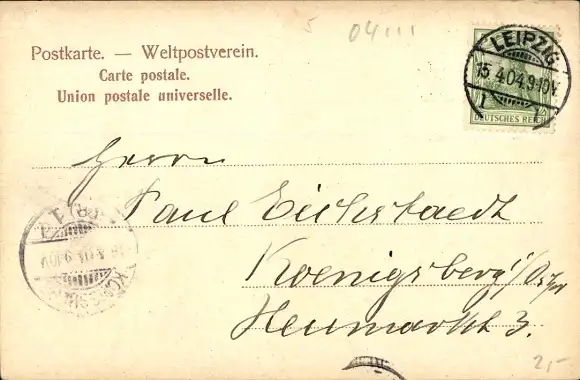 04111
Postkarte. — Weltpostverein.
Carte postale.
Union postale universelle.
LEIPZIG
15.4.04.9-10V.
1
DEUTSCHES REICH
Herrn
Paul Eichstaedt
Koenigsberg i/Ostpr
Heumarkt 3.
2,-